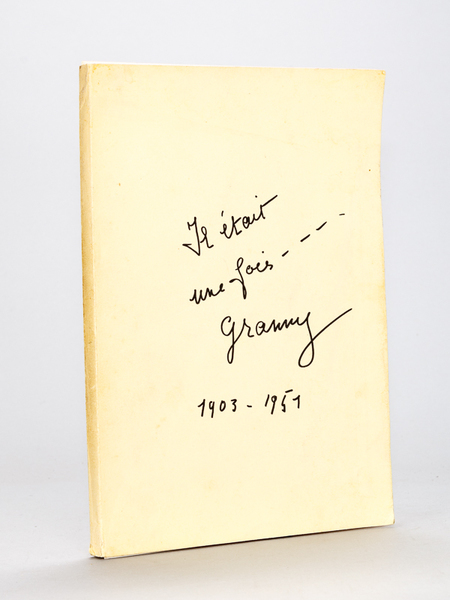 Il était
une fois ----
Granny
1903 - 1951